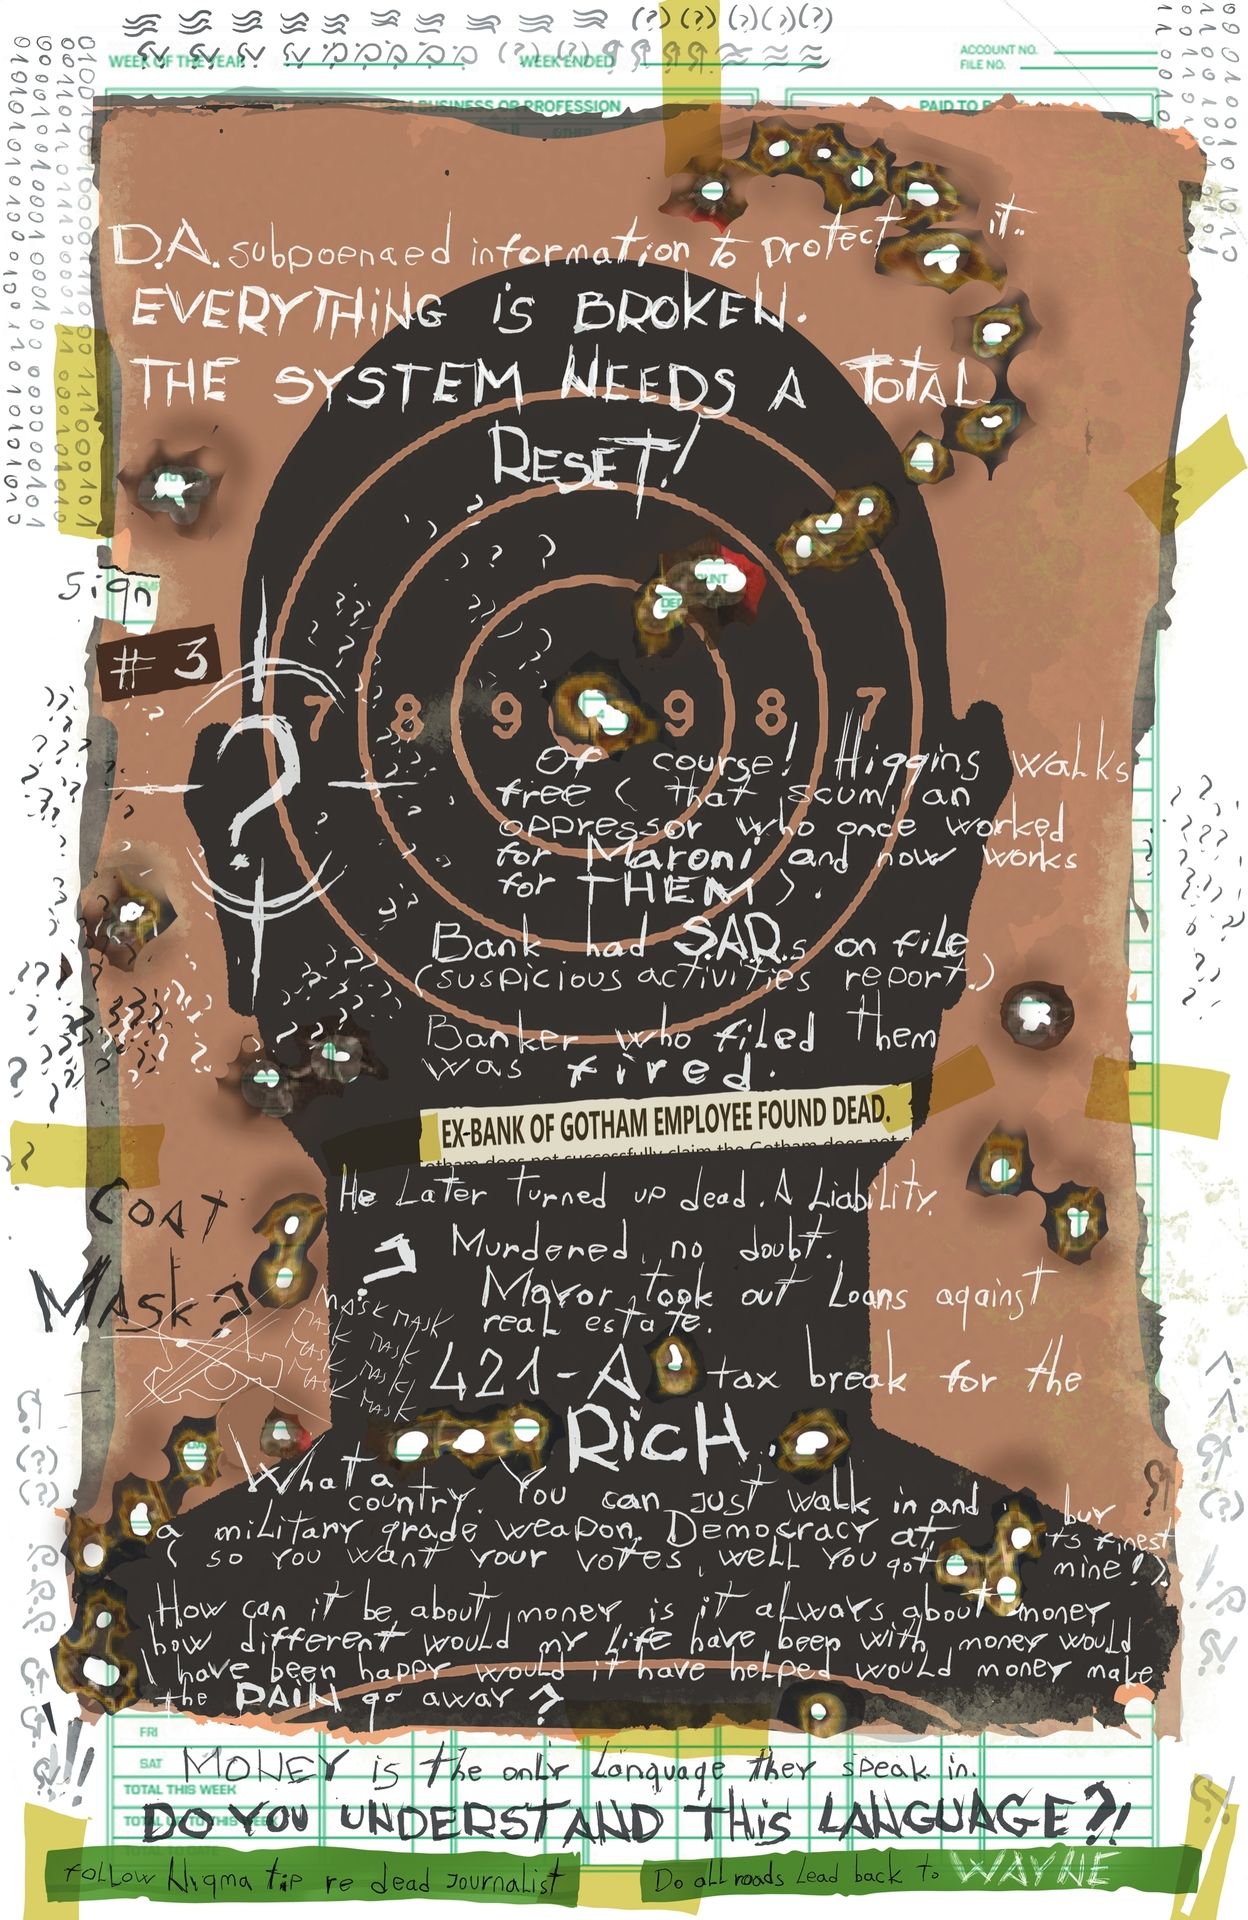 WEEK OF THE YEAR
WEEK ENDED
ACCOUNT NO.
FILE NO.
BUSINESS OR PROFESSION
PAID TO
D.A. subpoenaed information to protect it.
EVERYTHING iS BROKEN.
THE SYSTEM NEEDS A TOTAL
RESET!
Sign
# 3
?
7 8 9 9 8 7
Of course! Higgins walks
free ( that scum, an
oppressor who once worked
for Maroni and now works
for THEM ).
Bank had S.A.R.s on file
(suspicious activities report.)
Banker who filed them
was fired.
EX-BANK OF GOTHAM EMPLOYEE FOUND DEAD.
otham does not successfully claim the Gotham does not s
He Later turned up dead. A Liability.
Murdered, no doubt.
COAT
MASK?
MASK MASK
MASK MASK
MASK MASK
MASK MASK
MASK
Mayor took out Loans against
real estate.
421-A tax break for the
RicH.
What a
country. You can just walk in and buy
a military grade weapon. Democracy at its finest
( so you want your votes, well you got mine!)
How can it be about money is it always about money
how different would my life have been with money would
I have been happy would it have helped would money make
the PAIN go away ?
FRI
SAT
MONEY is the only Language they speak in.
TOTAL THIS WEEK
DO YOU UNDERSTAND THiS LANGUAGE?!
follow Nygma tip re dead journalist
Do all roads Lead back to WAYNE